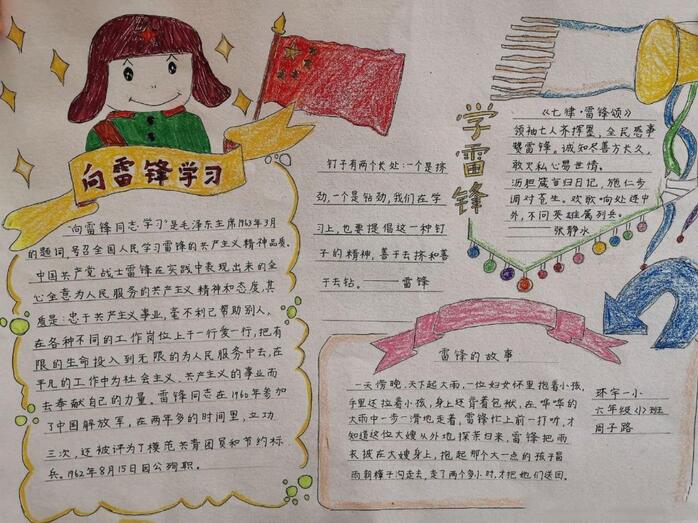 向雷锋学习
“向雷锋同志学习”是毛泽东主席1963年3月
的题词,号召全国人民学习雷锋的共产主义精神品质.
中国共产党战士雷锋在实践中表现出来的全
心全意为人民服务的共产主义精神和态度,其
实质是:忠于共产主义事业,毫不利己帮助别人,
在各种不同的工作岗位上干一行爱一行,把有
限的生命投入到无限的为人民服务中去,在
平凡的工作中为社会主义、共产主义的事业而
去奉献自己的力量。雷锋同志在1960年参加
了中国解放军,在两年多的时间里,立功
三次,还被评为了模范共青团员和节约标
兵。1962年8月15日因公殉职。
钉子有两个长处:一个是挤
劲,一个是钻劲,我们在学
习上,也要提倡这一种钉
子的精神,善于去挤和善
于去钻。——雷锋
学雷锋
《七律·雷锋颂》
领袖七人齐挥墨,全民感事
赞雷锋。诚知尽善方久人,
敢灭私心易世情。
沥胆箴言归日记,施仁步
调对苍生。欢歌响处连中
外,不问英雄属列兵。
——张静水
雷锋的故事
一天傍晚,天下起大雨,一位妇女怀里抱着小孩,
手里还拉着小孩,身上还背着包袱,在哗哗的
大雨中一步一滑地走着,雷锋忙上前一打听,才
知道这位大嫂从外地探亲归来,雷锋把雨
衣披在大嫂身上,抱起那个大一点的孩子冒
雨朝樟子沟走去,走了两个多小时,才把她们送回。
环宇一小
六年级(1)班
周子路